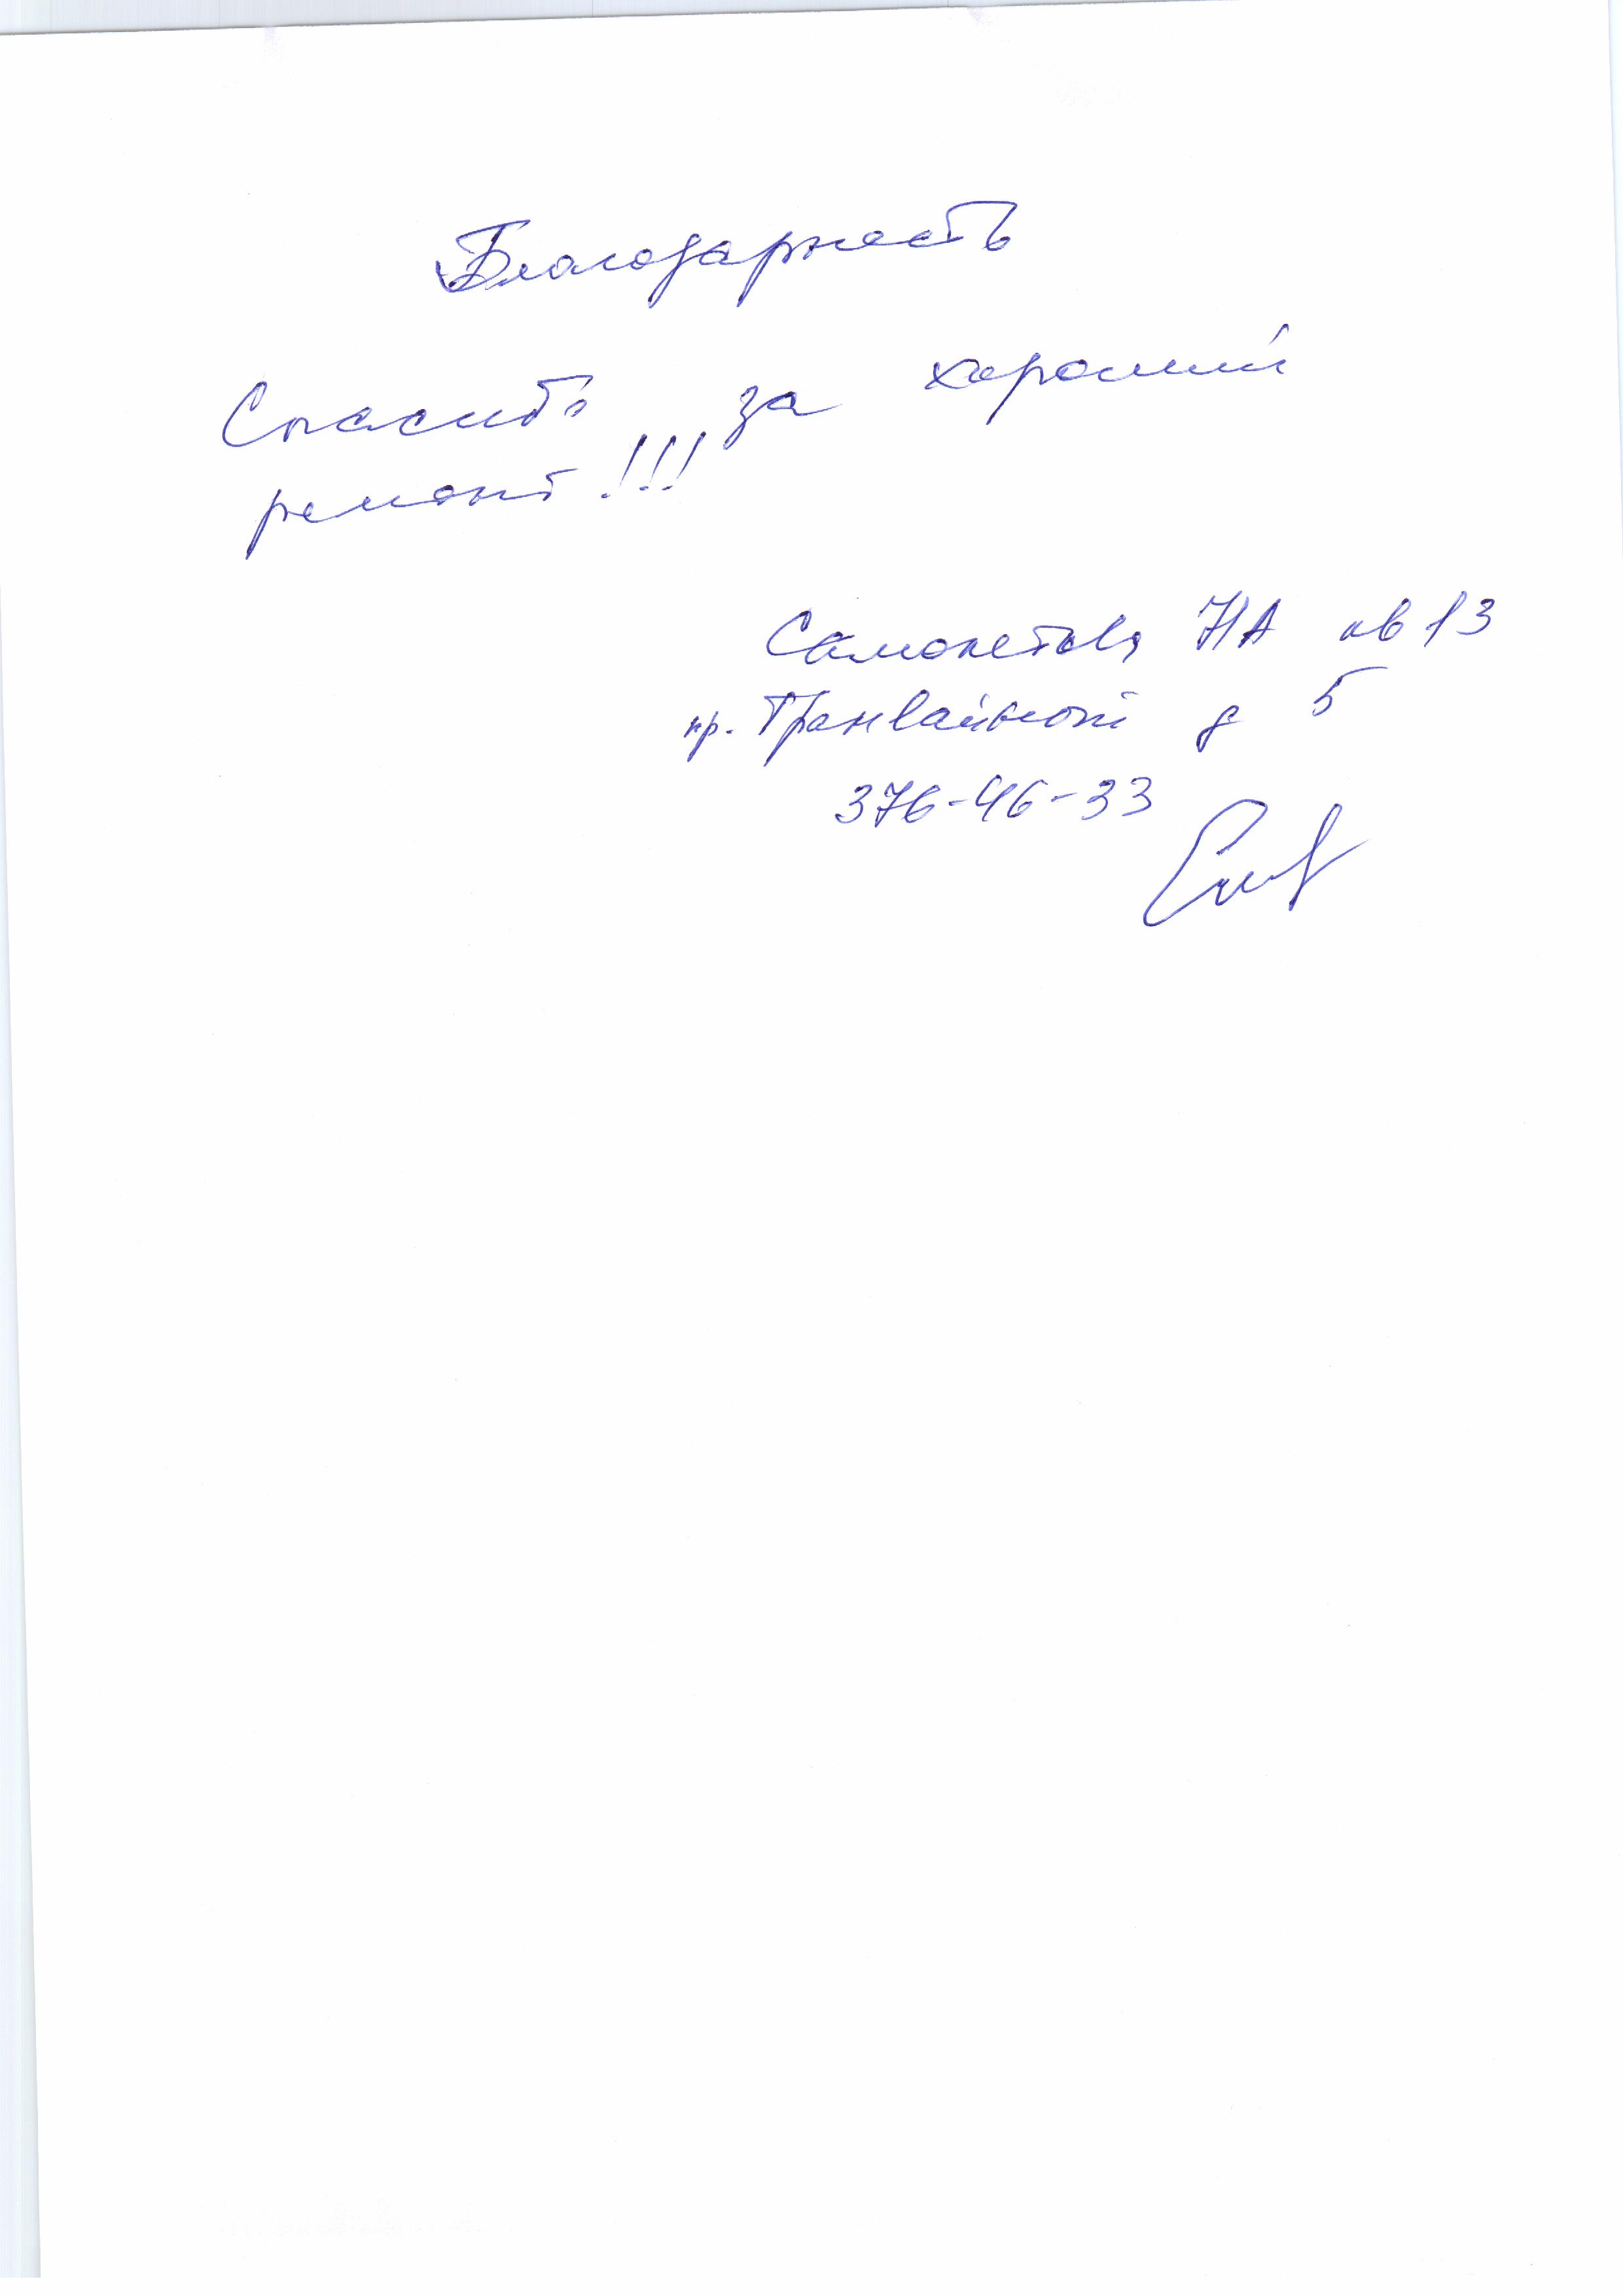 Благодарность
Спасибо за хороший
ремонт!!!
Самолетова НА кв 13
пр. Трамвайный д 5
376-46-33